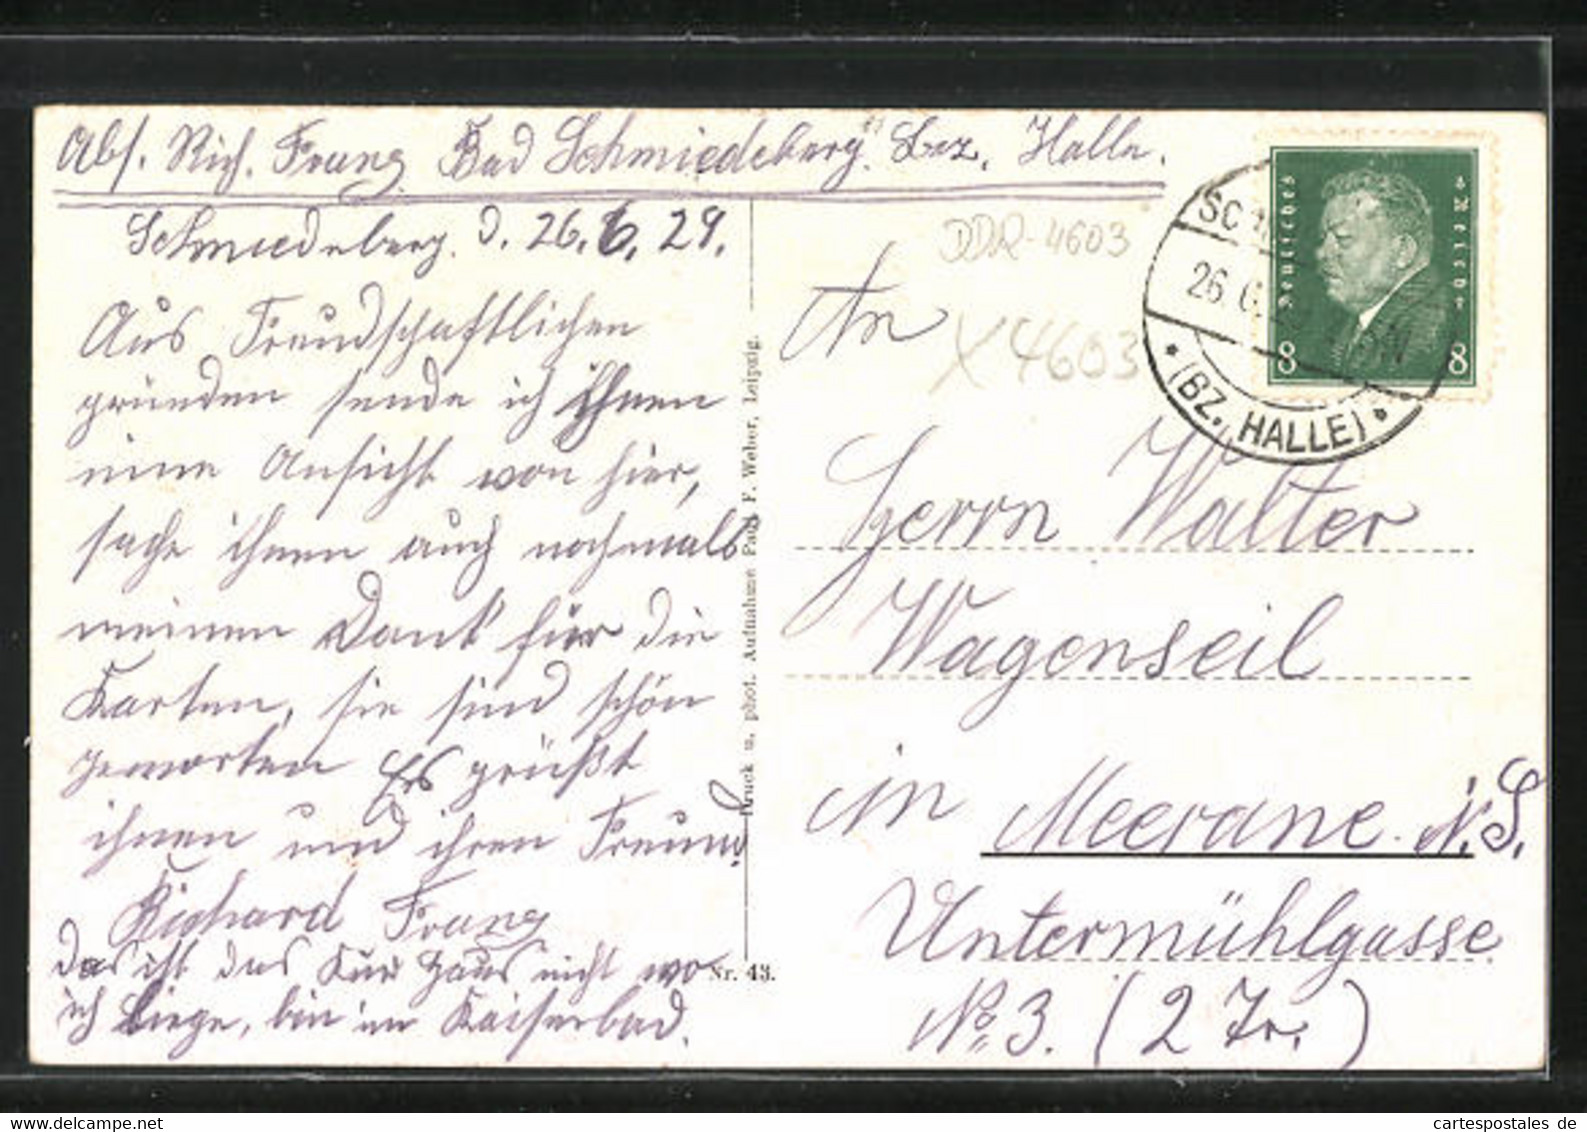 Abs. Rich. Franz Bad Schmiedeberg. Bez. Halle.
Schmiedeberg. d. 26.6.29.
Aus Freundschaftlichen
gründen sende ich Ihnen
eine Ansicht von hier,
sage ihnen auch nochmals
meinen Dank für die
Karten, sie sind schön
geworten Es grüßt
ihnen und ihren Freund
Richard Franz
das ist das Kur Haus nicht wo
ich Liege, bin im Kaiserbad.
Druck u. phot. Aufnahme Paul F. Weber, Leipzig.
Nr. 43.
DDR-4603
X 4603
An
Herrn Walter
Wagenseil
in Meerane i. S.
Untermühlgasse
No 3. (2 Tr.)
Deutsches Reich
8 8
26.6.
(BZ. HALLE)
cartespostales de